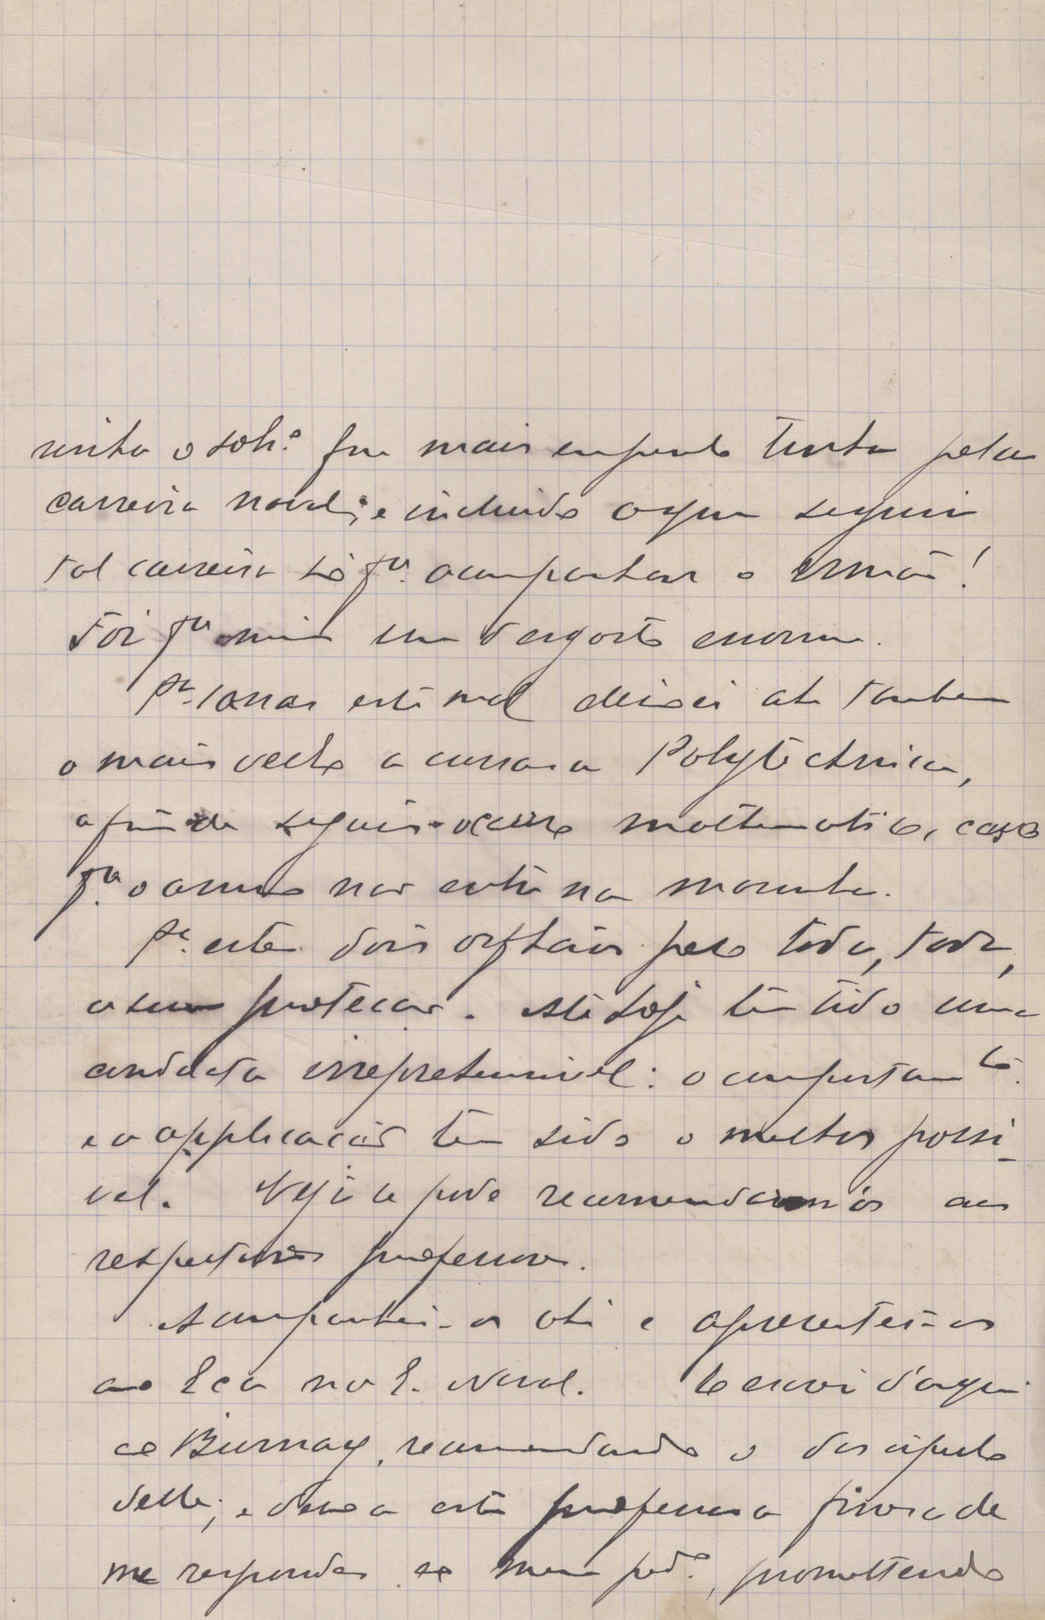 o sobr.º que mais empenho tinha pela
carreira naval; e incluido o que seguiu
tal carreira só p.ª acompanhar o irmão!
Foi p.ª mim um desgosto enorme.
P.ª estes mal deixei ahi tambem
o mais velho a cursar a Polytechnica,
a fim de seguir o curso mathematico, caso
p.ª o anno não entre na marinha.
P.ª estes dois orphãos peço toda, toda,
a sua protecção. Até hoje têm tido uma
conducta irreprehensivel: o comportam.to
e a applicação têm sido o melhor possi-
vel. Veja se pode recommendar-m'os aos
respectivos professores.
Acompanhei-os ahi e apresentei-os
ao Eça na E. Naval. Escrevi d'aqui
ao Burnay, recommendando o discipulo
delle; e deveu este professor a fineza de
me responder ao meu ped.º, promettendo